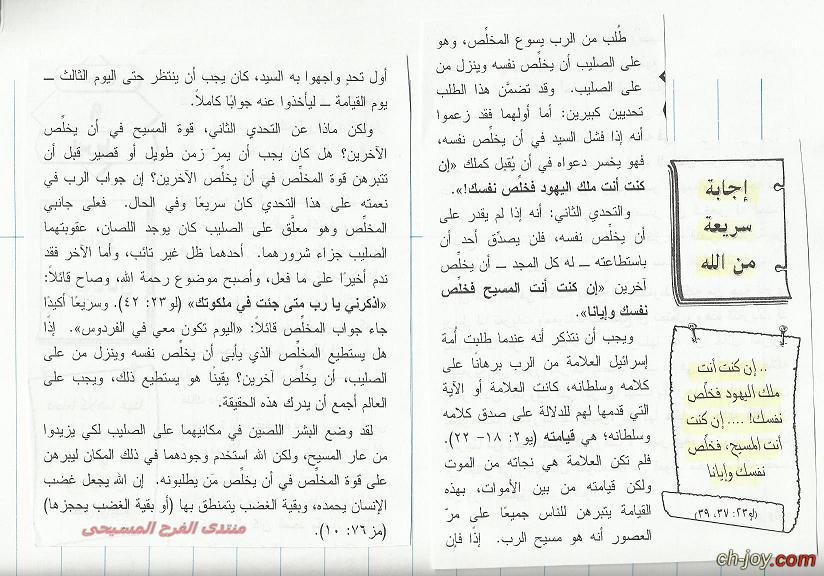 إجابة
سريعة
من الله
.. إن كنت أنت
ملك اليهود فخلِّص
نفسك! .... إن كنت
أنت المسيح، فخلِّص
نفسك وإيانا
(لو٢٣: ٣٧، ٣٩)
طُلب من الرب يسوع المخلِّص، وهو
على الصليب أن يخلِّص نفسه وينزل من
على الصليب. وقد تضمَّن هذا الطلب
تحديين كبيرين: أما أولهما فقد زعموا
أنه إذا فشل السيد في أن يخلِّص نفسه،
فهو يخسر دعواه في أن يُقبل كملك «إن
كنت أنت ملك اليهود فخلِّص نفسك!».
والتحدي الثاني: أنه إذا لم يقدر على
أن يخلِّص نفسه، فلن يصدِّق أحد أن
باستطاعته ــ له كل المجد ــ أن يخلِّص
آخرين «إن كنت أنت المسيح فخلِّص
نفسك وإيانا».
ويجب أن نتذكر أنه عندما طلبت أُمة
إسرائيل العلامة من الرب برهانًا على
كلامه وسلطانه، كانت العلامة أو الآية
التي قدمها لهم للدلالة على صدق كلامه
وسلطانه؛ هي قيامته (يو٢: ١٨- ٢٢).
فلم تكن العلامة هي نجاته من الموت
ولكن قيامته من بين الأموات، بهذه
القيامة يتبرهن للناس جميعًا على مرِّ
العصور أنه هو مسيح الرب. إذًا فإن
أول تحدٍ واجهوا به السيد، كان يجب أن ينتظر حتى اليوم الثالث ــ
يوم القيامة ــ ليأخذوا عنه جوابًا كاملاً.
ولكن ماذا عن التحدي الثاني، قوة المسيح في أن يخلِّص
الآخرين؟ هل كان يجب أن يمرّ زمن طويل أو قصير قبل أن
تتبرهن قوة المخلِّص في أن يخلِّص الآخرين؟ إن جواب الرب في
نعمته على هذا التحدي كان سريعًا وفي الحال. فعلى جانبي
المخلِّص وهو معلَّق على الصليب كان يوجد اللصان، عقوبتهما
الصليب جزاء شرورهما. أحدهما ظل غير تائب، وأما الآخر فقد
ندم أخيرًا على ما فعل، وأصبح موضوع رحمة الله، وصاح قائلاً:
«اذكرني يا رب متى جئت في ملكوتك» (لو٢٣: ٤٢). وسريعًا أكيدًا
جاء جواب المخلِّص قائلاً: «اليوم تكون معي في الفردوس». إذًا
هل يستطيع المخلِّص الذي يأبى أن يخلِّص نفسه وينزل من على
الصليب، أن يخلِّص آخرين؟ يقينًا هو يستطيع ذلك، ويجب على
العالم أجمع أن يدرك هذه الحقيقة.
لقد وضع البشر اللصين في مكانيهما على الصليب لكي يزيدوا
من عار المسيح، ولكن الله استخدم وجودهما في ذلك المكان ليبرهن
على قوة المخلِّص في أن يخلِّص مَن يطلبونه. إن الله يجعل غضب
الإنسان يحمده، وبقية الغضب يتمنطق بها (أو بقية الغضب يحجزها)
(مز٧٦: ١٠).
منتدى الفرح المسيحى
ch-joy.com